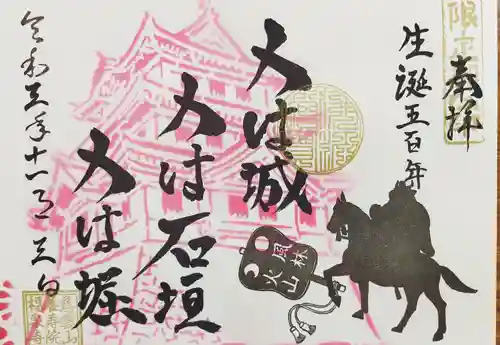 限定
奉拝
生誕五百年
人は城
人は石垣
人は堀
風林
火山
令和三年十一月三日